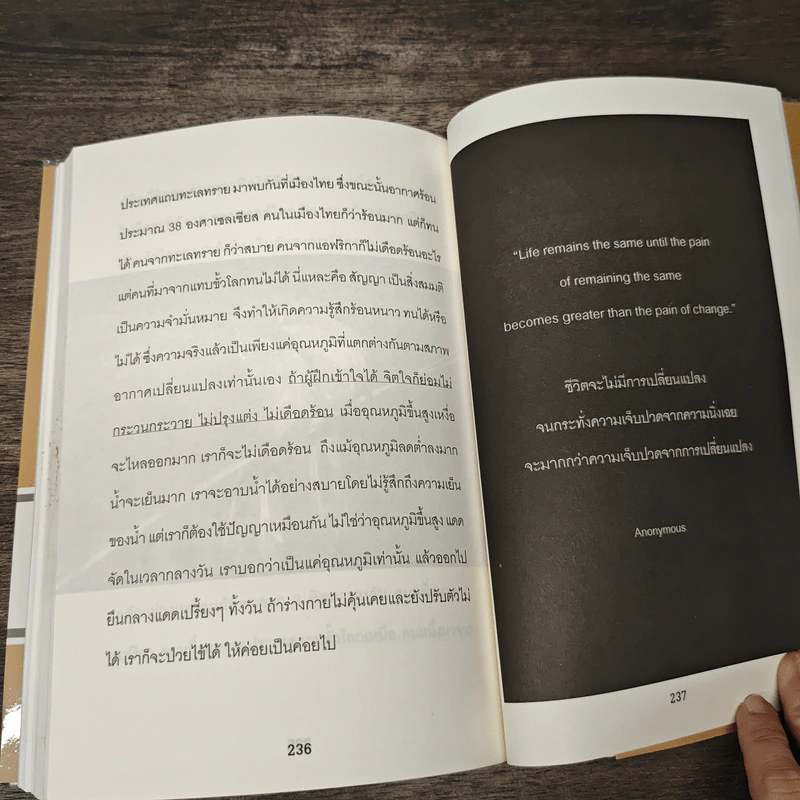 ประเทศแถบทะเลทราย มาพบกันที่เมืองไทย ซึ่งขณะนั้นอากาศร้อน
ประมาณ 38 องศาเซลเซียส คนในเมืองไทยก็ว่าร้อนมาก แต่ก็ทน
ได้ คนจากทะเลทราย ก็ว่าสบาย คนจากแอฟริกาก็ไม่เดือดร้อนอะไร
แต่คนที่มาจากแทบขั้วโลกทนไม่ได้ นี่แหละคือ สัญญา เป็นสิ่งสมมติ
เป็นความจำมั่นหมาย จึงทำให้เกิดความรู้สึกร้อนหนาว ทนได้หรือ
ไม่ได้ ซึ่งความจริงแล้วเป็นเพียงแค่อุณหภูมิที่แตกต่างกันตามสภาพ
อากาศเปลี่ยนแปลงเท่านั้นเอง ถ้าผู้ฝึกเข้าใจได้ จิตใจก็ย่อมไม่
กระวนกระวาย ไม่ปรุงแต่ง ไม่เดือดร้อน เมื่ออุณหภูมิขึ้นสูงเหงื่อ
จะไหลออกมาก เราก็จะไม่เดือดร้อน ถึงแม้อุณหภูมิลดต่ำลงมาก
น้ำจะเย็นมาก เราจะอาบน้ำได้อย่างสบายโดยไม่รู้สึกถึงความเย็น
ของน้ำ แต่เราก็ต้องใช้ปัญญาเหมือนกัน ไม่ใช่ว่าอุณหภูมิขึ้นสูง แดด
จัดในเวลากลางวัน เราบอกว่าเป็นแค่อุณหภูมิเท่านั้น แล้วออกไป
ยืนกลางแดดเปรี้ยงๆ ทั้งวัน ถ้าร่างกายไม่คุ้นเคยและยังปรับตัวไม่
ได้ เราก็จะป่วยไข้ได้ ให้ค่อยเป็นค่อยไป
236
“Life remains the same until the pain
of remaining the same
becomes greater than the pain of change.”
ชีวิตจะไม่มีการเปลี่ยนแปลง
จนกระทั่งความเจ็บปวดจากความนิ่งเฉย
จะมากกว่าความเจ็บปวดจากการเปลี่ยนแปลง
Anonymous
237